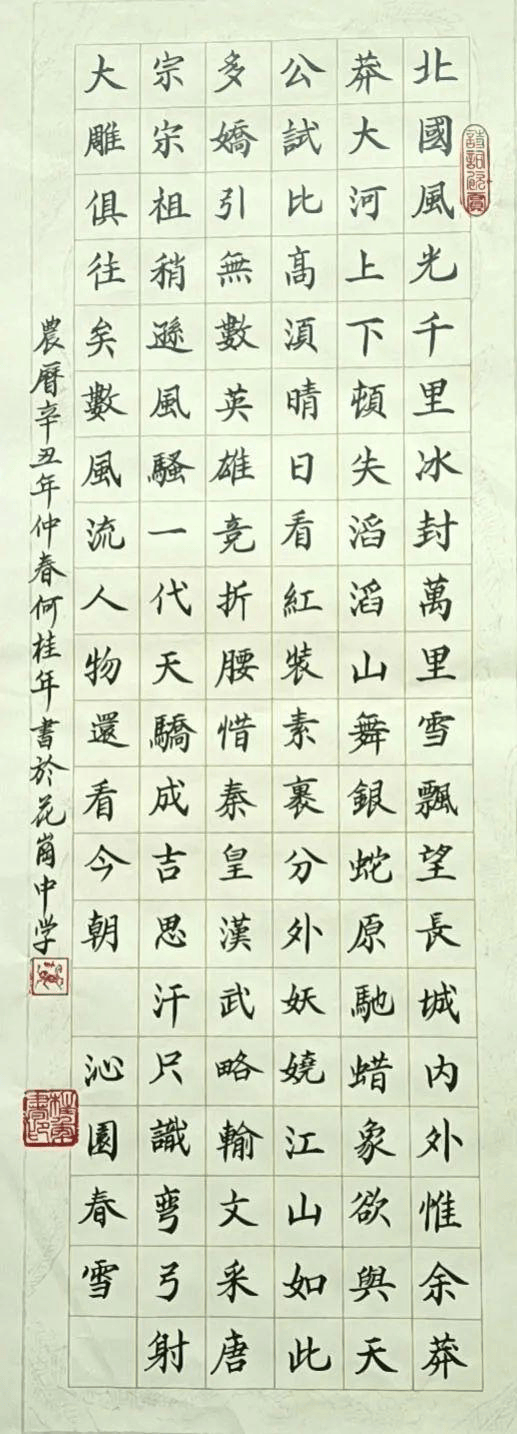 北國風光千里冰封萬里雪飄望長城内外惟余莽
莽大河上下頓失滔滔山舞銀蛇原馳蜡象欲與天
公試比高湏晴日看紅裝素裹分外妖嬈江山如此
多嬌引無數英雄竞折腰惜秦皇漢武略輸文采唐
宗宋祖稍遜風騷一代天驕成吉思汗只識彎弓射
大雕俱往矣數風流人物還看今朝 沁園春雪
農曆辛丑年仲春何桂年書於花崗中学